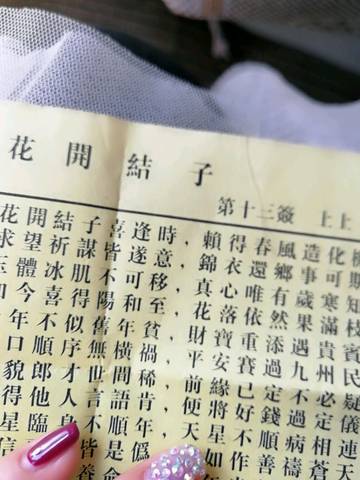 花開結子
第十三簽 上上
花開結子喜逢時,賴得春風造化機
求望祈謀皆遂意,錦衣還鄉事可期
玉體冰肌不可移,真心唯有歲寒知
今喜得陽和至,花落依然果滿枝
年不似舊年貧,財寶重添遇貴賓
口順序無橫禍,平安賽過九州民
貌郎才世間稀,前緣已定不必疑
得他人言語肯,便將好錢過定儀
星臨身不順年,天星不順病相連
信皆是僞,如作善禱蒼天
養命